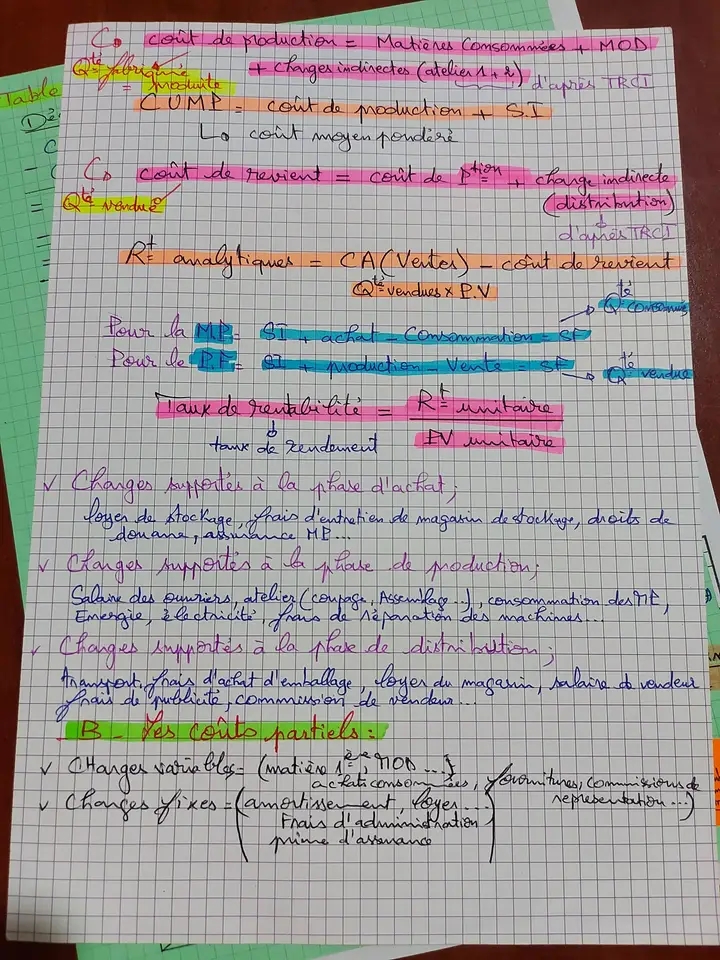 C. coût de production = Matières Consommées + MOD
Qté fabriquée + charges indirectes (atelier 1 + 2) d'après TRCI
= produite
CUMP = coût de production + S.I
L. coût moyen pondéré
C. coût de revient = coût de Ption + charge indirecte
Qté vendue (distribution)
d'après TRCI
Rt analytiques = CA (Ventes) - coût de revient
Qté vendues x P.V
Qté consommés
Pour la MP = SI + achat - Consommation = SF
Pour le P.F = SI + production - Vente = SF
Qté vendue
Taux de rentabilité = Rt unitaire
PV unitaire
taux de rendement
√ Charges supportés à la phase d'achat ;
loyer de stockage, frais d'entretien de magasin de stockage, droits de
douane, assurance MP...
√ Charges supportés à la phase de production ;
Salaire des ouvriers, atelier (coupage, Assemblage..), consommation des ME,
Energie, électricité, frais de réparation des machines...
√ Charges supportés à la phase de distribution ;
Transport, frais d'achat d'emballage, loyer du magasin, salaire de vendeur
frais de publicité, commission de vendeur...
B - Les coûts partiels :
√ CHarges variables = (matière 1ère, MOD ...)
achats consommées, fournitures, commissions de
representation ...)
√ Charges fixes = (amortissement, loyer...
Frais d'administration
prime d'assurance
Table